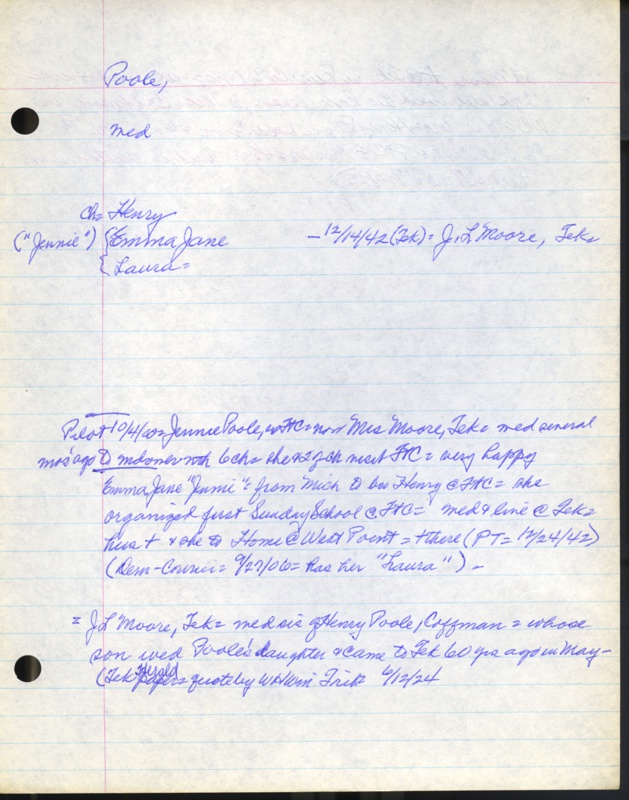 Poole,
med
ch= Henry
("Jennie") { Emma Jane -12/14/42 (Tek)= J. L Moore, Tek=
{ Laura=
Pilot 10/4/00= Jennie Poole, w FtC= now Mrs Moore, Tek= med several
mos' ago to 6 ch= she visit FtC= very happy
Emma Jane "Jennie"= from Mich to bro Henry @ FtC= she
organized first Sunday School @ FtC= med & line @ Tek=
hus + & she to Home @ West Point= + there (PT= 12/24/42)
(Dem-Courier= 9/27/06= has her "Laura") -
= J L Moore, Tek= med sis of Henry Poole, Coffman= whose
son wed Poole's daughter & came to Tek 60 yrs ago in May-
(Tek Herald paper= quote by W H Wm' 6/12/24